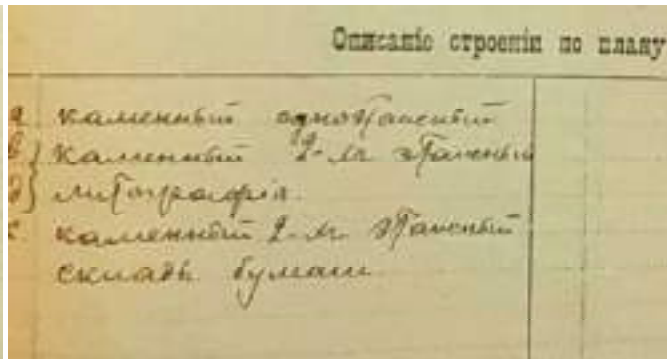 Описаніе строеній по плану
а каменный одноэтажный
каменный 2-хъ этажный
литографія.
каменный 2-хъ этажный
складъ бумаги